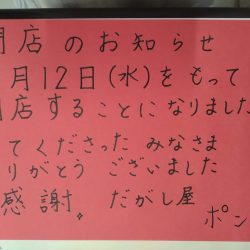 店のお知らせ
月12日(水)をもって
店することになりました
てくださったみなさま
りがとうございました
感謝。だがし屋
ポン